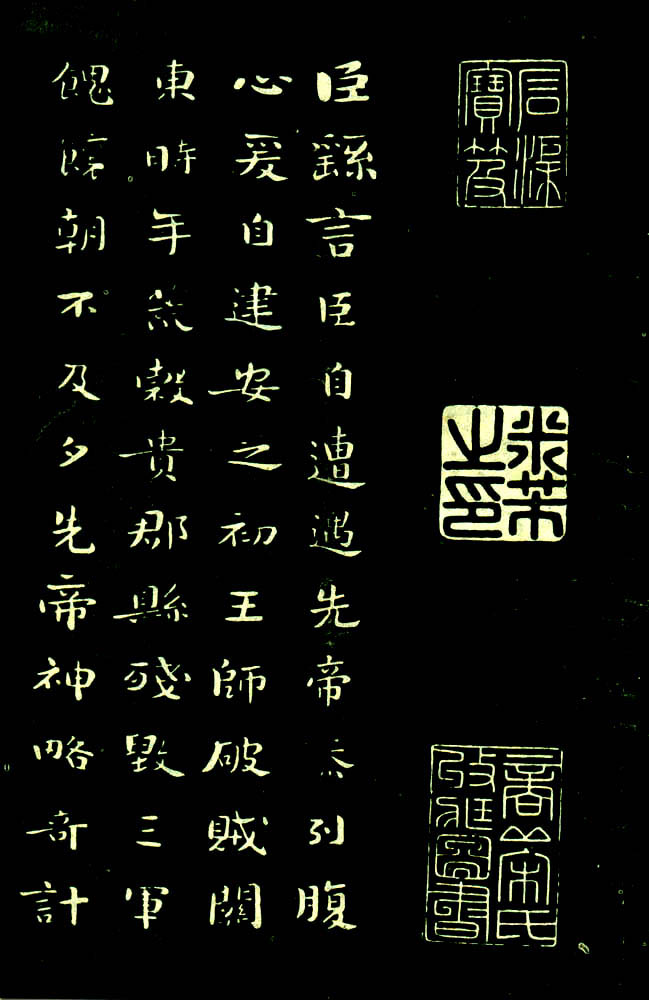 米芾
之印
商丘宋氏
臣繇言臣自遭遇先帝忝列腹
心爰自建安之初王師破賊關
東時年荒穀貴郡縣殘毀三軍
餽饟朝不及夕先帝神略奇計